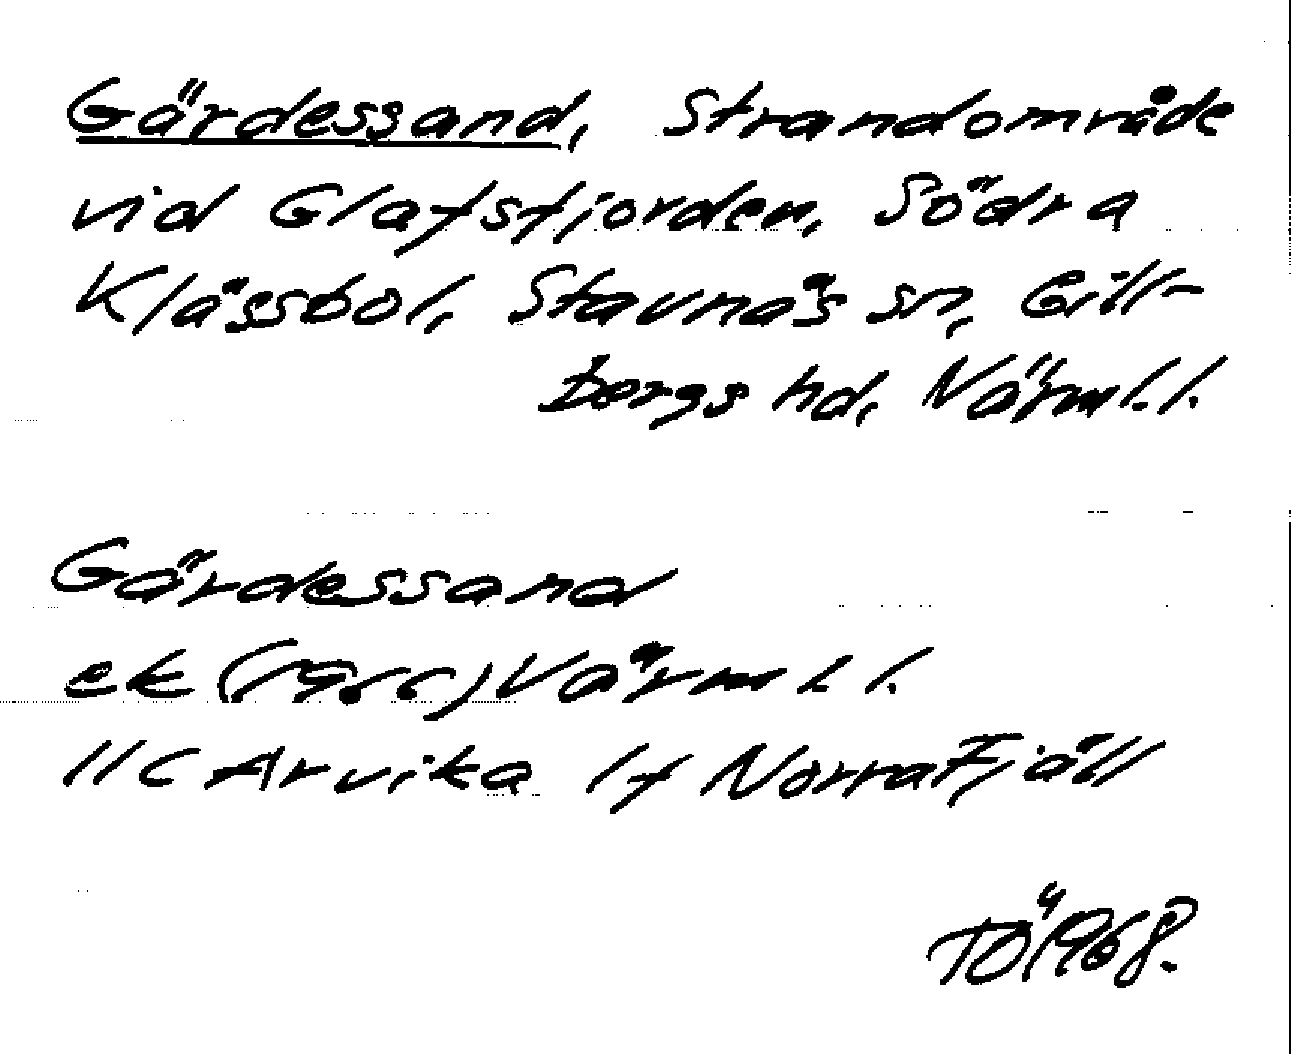 Gärdessand, Strandområde
vid Glafsfjorden, Södra
Klässbol, Stavnäs sn, Gill-
bergs hd, Värml.l.
Gärdessand
ek (1966) Värml.l.
11C Arvika 1f Norra Fjäll
TÖ 1968.